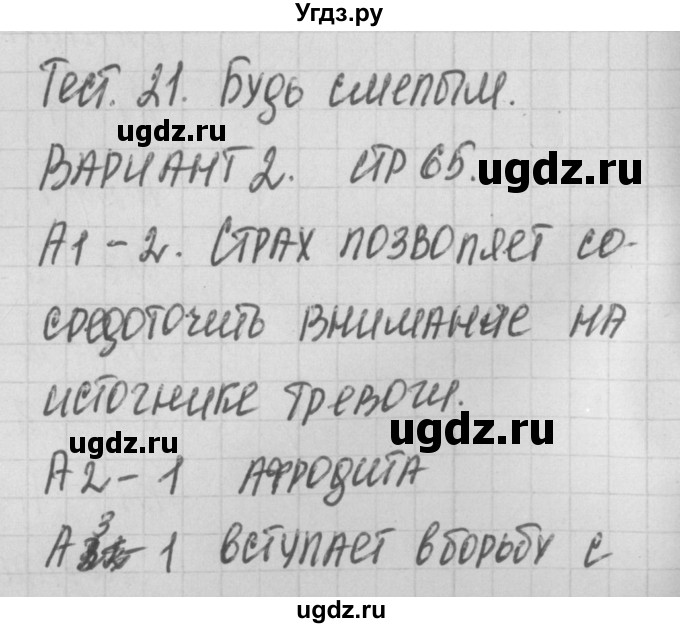 Угдз.ру
Тест. 21. Будь смелым.
ugdz.ru
ВАРИАНТ 2. стр 65.
ugdz.ru
А1 - 2. Страх позволяет со-
средоточить внимание на
источнике тревоги.
ugdz.ru
ugdz.ru
А2 - 1 Афродита
А3 - 1 вступает в борьбу с
ugdz.ru
ugdz.ru